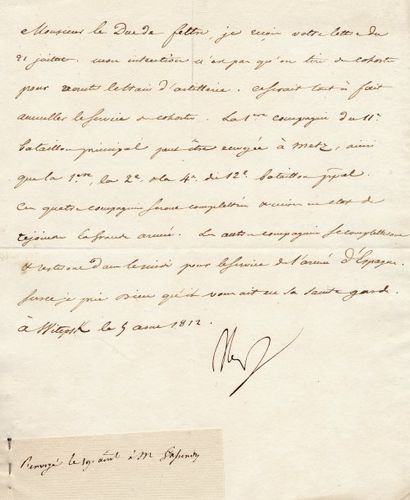 Monsieur le Duc de feltre, je reçois votre lettre du
21 juillet. mon intention n'est pas qu'on tire de cohortes
pour recruter le train d'artillerie. ce serait tout à fait
annuller le service de cohortes. La 1ere compagnie du 11e
bataillon principal peut être envoyée à Metz, ainsi
que la 1ere, la 2e et la 4e du 12e bataillon pal.
Ces quatre compagnies seront complettées et mises en état de
rejoindre la grande armée. Les autres compagnies se completteront
et resteront dans le midi pour le service de l'armée d'Espagne.
sur ce je prie Dieu qu'il vous ait en sa sainte garde.
à Witepsk le 5 aout 1812.
Nap
Renvoyé le 19 août à Mr Gassendi